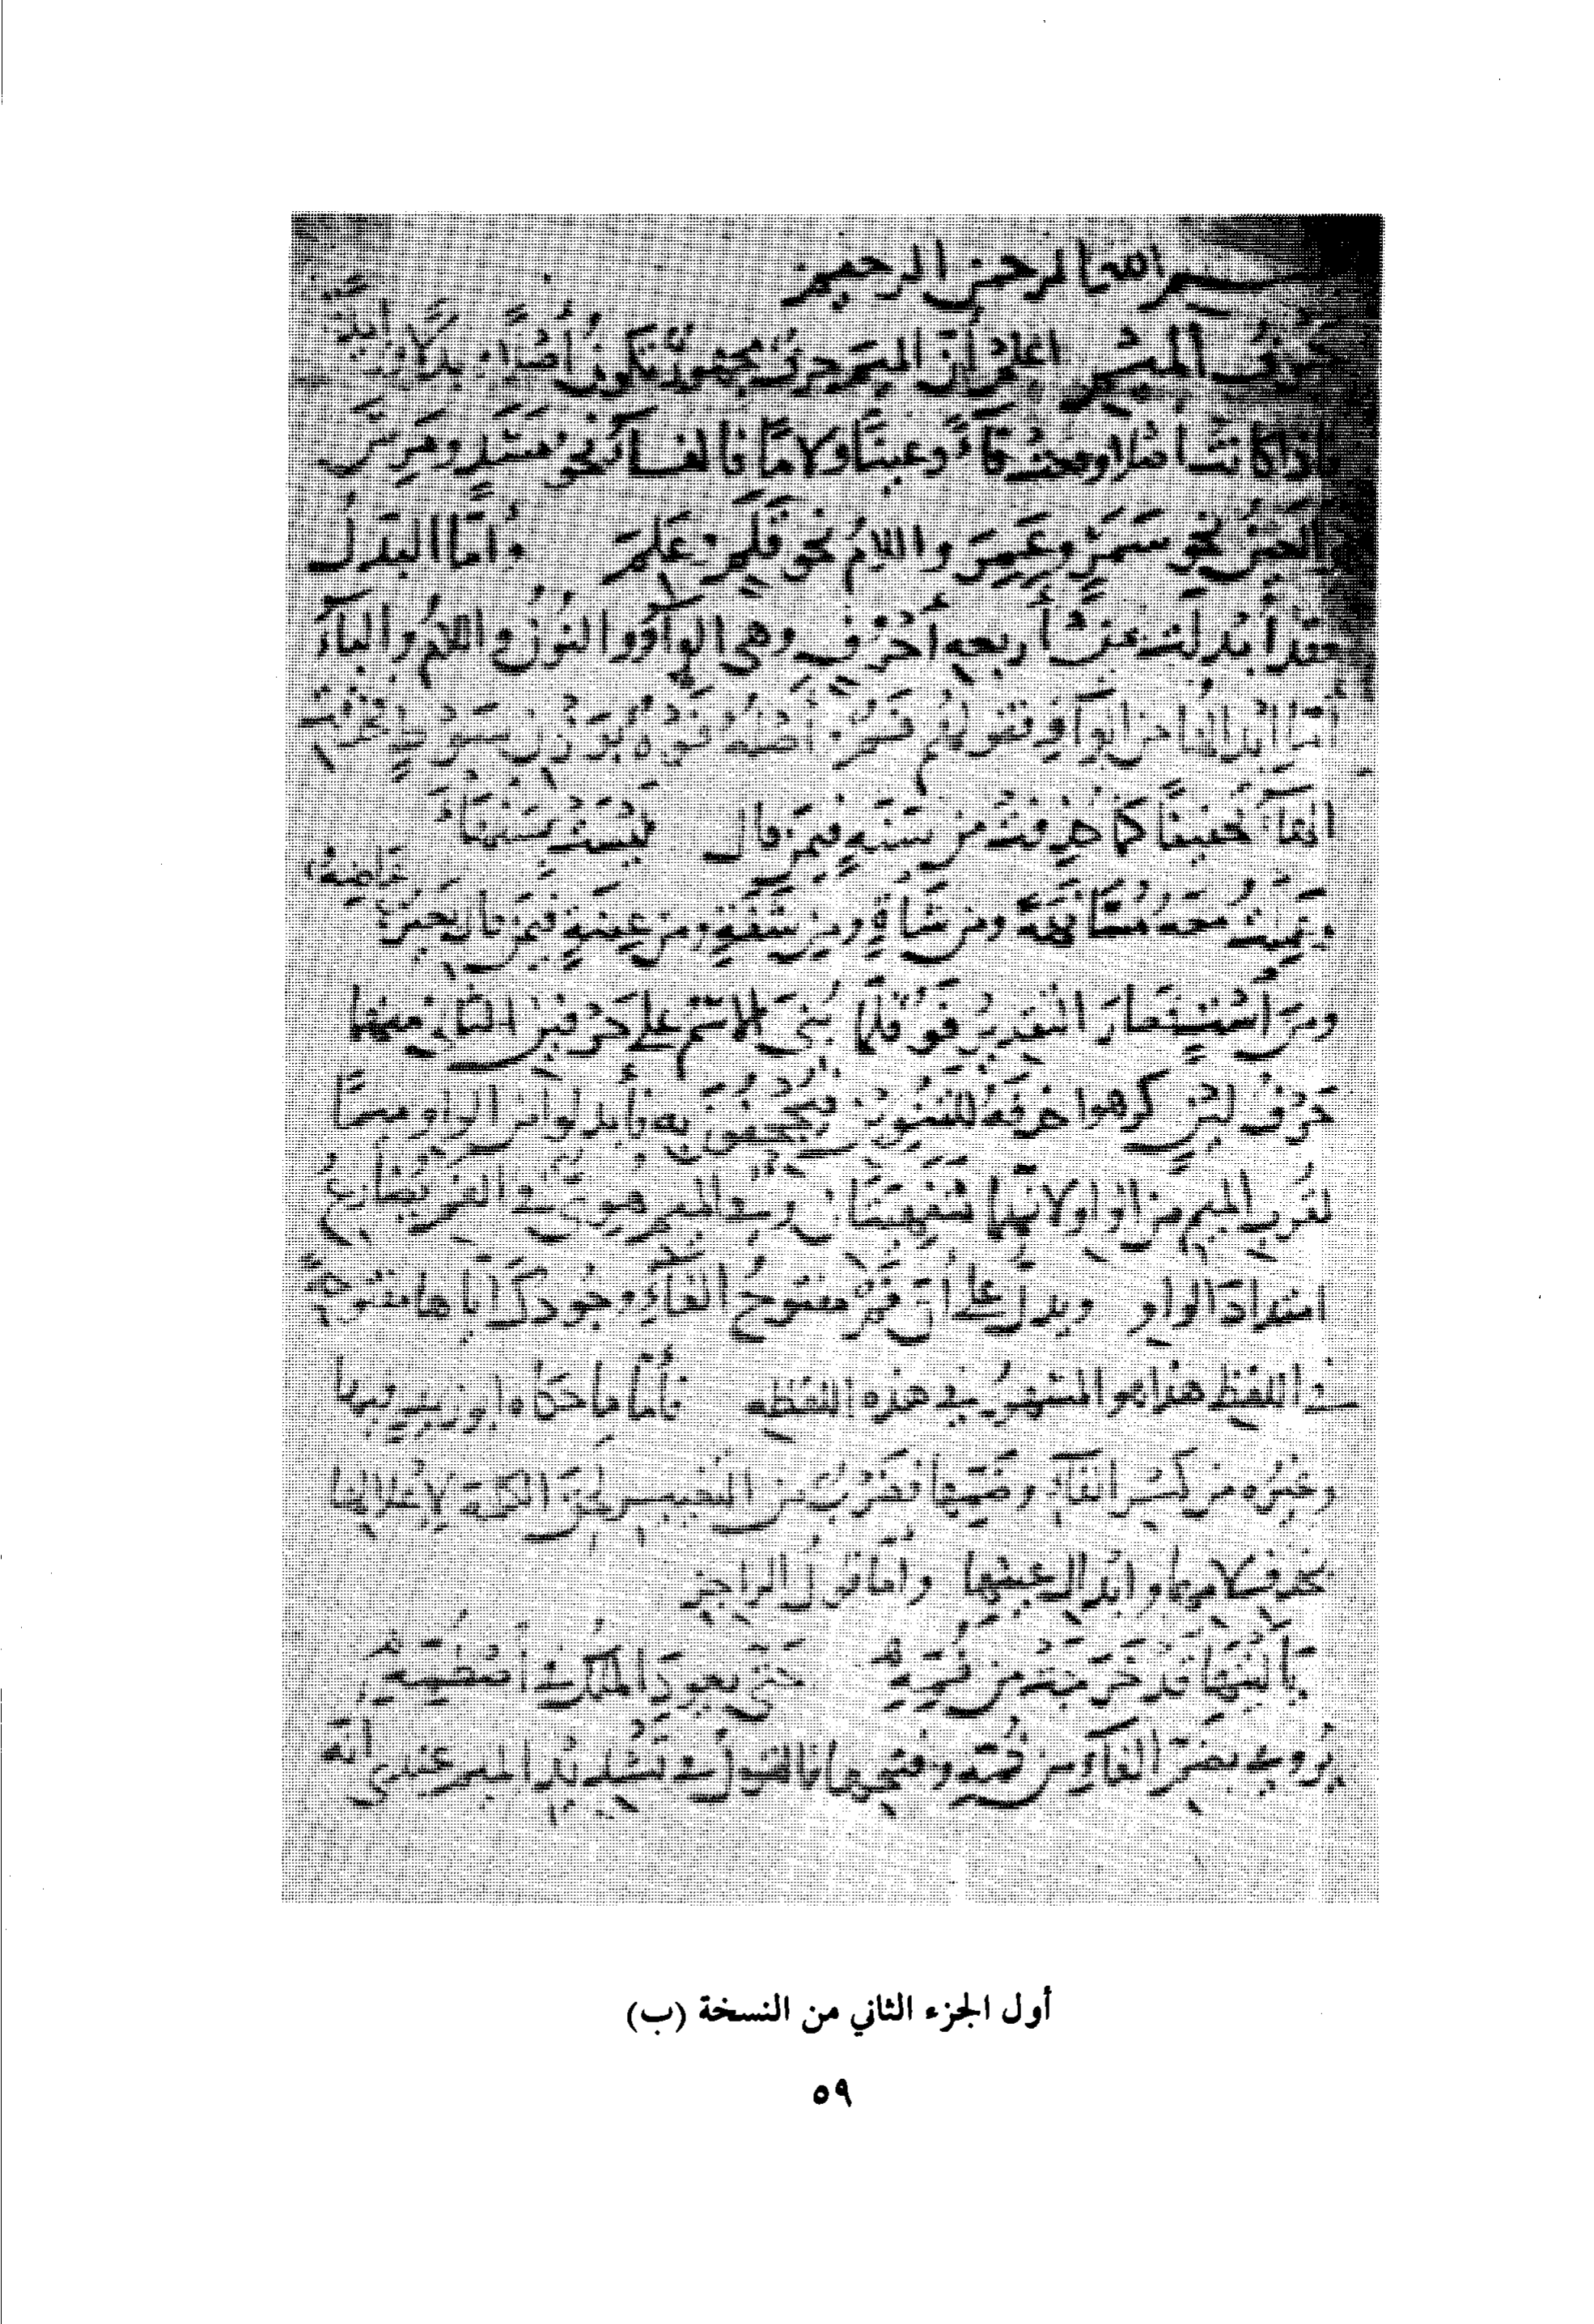 بسم الله الرحمن الرحيم
حرف الميم اعلم أن الميم حرف مجهور يكون أصلا وبدلا وزايدا
فاذا كانت أصلا وقعت فاء وعينا ولاما فالفاء نحو مسد ومرس
والعين نحو سمر وعمر واللام نحو قلم وعلم وأما البدل
فقد أبدلت عن أربعة أحرف وهي الواو والنون واللام والباء
أما ابدالها من الواو فقولهم فم أصله فوه بوزن سوط فحذفت
الهاء تخفيفا كما حذفت من سنة فيمن قال ليست بسنهاء
وعملت معه مسانهة ومن شاة ومن شفة ومن عضة فيمن قال بعير
عاضه
ومن است فصار التقدير فو فلما بقي الاسم على حرفين الثاني منهما
حرف لين كرهوا حذفه للتنوين فيجحفون به فأبدلوا من الواو ميما
لقرب الميم من الواو لانهما شفهيتان وفي الميم هوي في الفم يضارع
امتداد الواو ويدل على أن فم مفتوح الفاء وجودك اياها مفتوحة
في اللفظ هذا هو المشهور في هذه اللفظه فأما ما حكاه ابو زيد فيها
وغيره من كسر الفاء وضمها فضرب من التغيير لحق الكلمة لاعلالها
بحذف لامها وابدال عينها وأما قول الراجز
يا ليتها قد خرجت من فمه حتى يعود الملك في أصطمه
يروى بضم الفاء من فمه وفتحها فالقول في تشديد الميم عندي أنه
أول الجزء الثاني من النسخة (ب)
٥٩